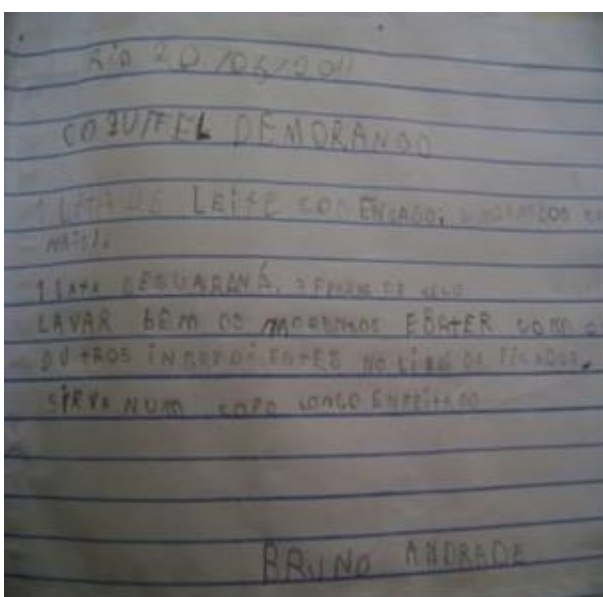 RIO 20/05/2011
COQUITEL DEMORANGO
1 LATA DE LEITE CONDENSADO,
1 LATA DEGUARANÁ, 3 PEDRAS DE GELO
LAVAR BEM OS MORANGOS EBATER COM O
OUTROS INGREDIENTES NO LIQUIDIFICADOR.
SIRVA NUM COPO LONGO ENFEITADO
BRUNO ANDRADE